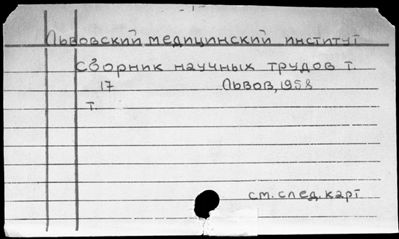 Львовский медицинский институт
Сборник научных трудов т.
17 Львов, 1958
т.
см. след. карт